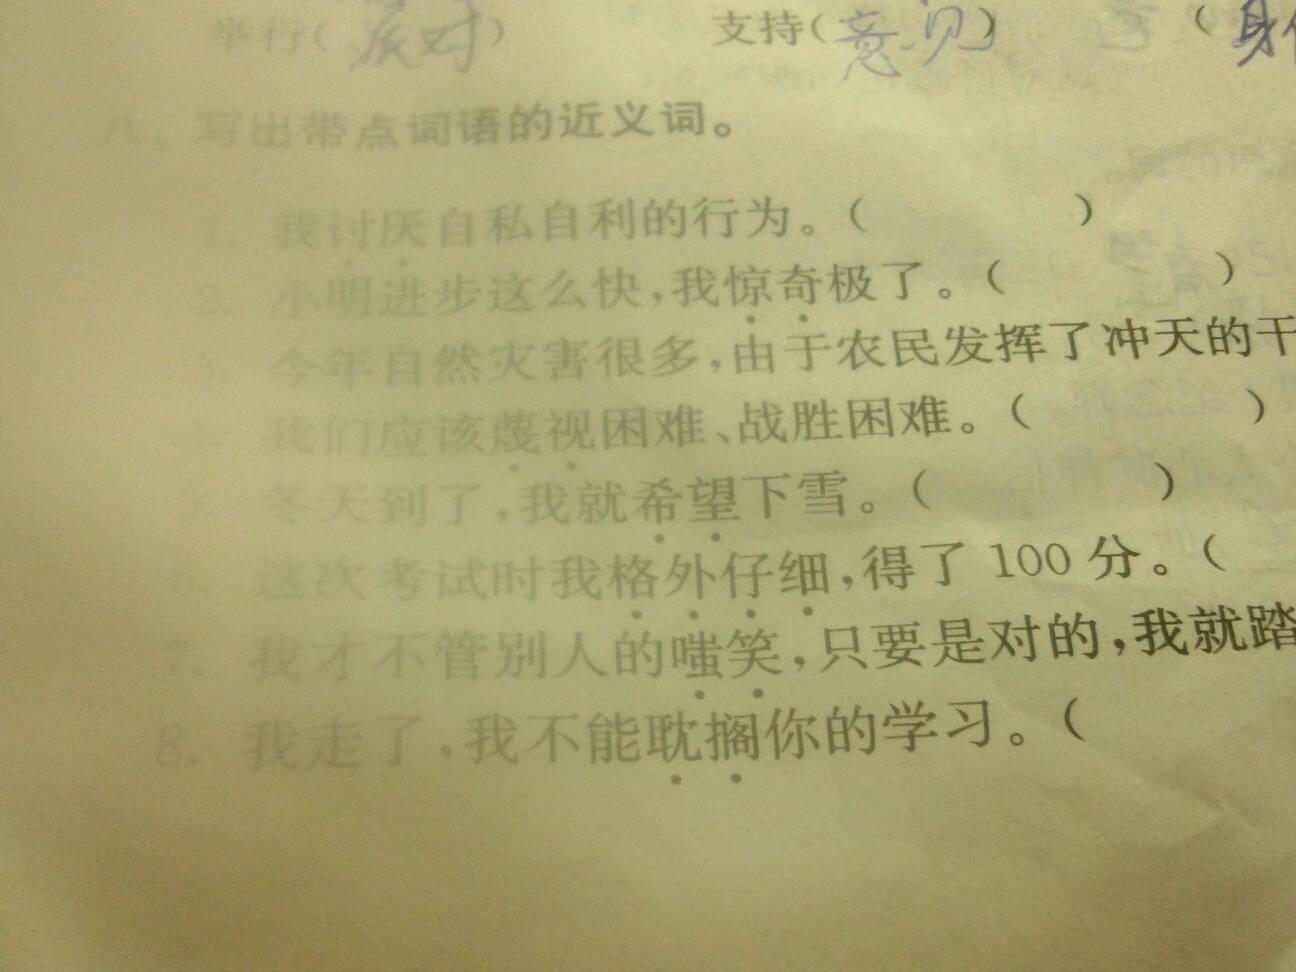 举行(反对) 支持(意见) (身
八、写出带点词语的近义词。
1. 我讨厌自私自利的行为。( )
2. 小明进步这么快,我惊奇极了。( )
3. 今年自然灾害很多,由于农民发挥了冲天的干
4. 我们应该蔑视困难、战胜困难。( )
5. 冬天到了,我就希望下雪。( )
这次考试时我格外仔细,得了 100 分。(
7. 我才不管别人的嗤笑,只要是对的,我就踏
8. 我走了,我不能耽搁你的学习。(